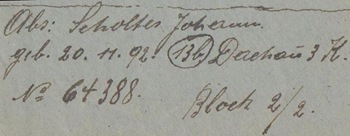 Abs: Scholtes Johann.
geb. 20. 11. 92. 13b Dachau 3 K.
No 64388. Block 2/2.